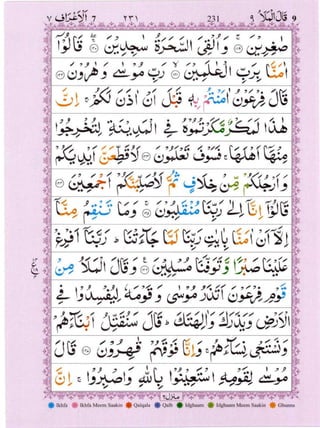 ٧ اَلْاَعْرَاف 7 ٢٣١ 231 ٩ قَالَ الْمَلَاُ 9
صٰغِرِيْنَ ﴿١١٩﴾ وَاُلْقِيَ السَّحَرَةُ سٰجِدِيْنَ ﴿١٢٠﴾ قَالُوْٓا
اٰمَنَّا بِرَبِّ الْعٰلَمِيْنَ ﴿١٢١﴾ رَبِّ مُوْسٰى وَهٰرُوْنَ ﴿١٢٢﴾
قَالَ فِرْعَوْنُ اٰمَنْتُمْ بِهٖ قَبْلَ اَنْ اٰذَنَ لَكُمْ ۚ اِنَّ
هٰذَا لَمَكْرٌ مَّكَرْتُمُوْهُ فِى الْمَدِيْنَةِ لِتُخْرِجُوْا
مِنْهَآ اَهْلَهَا ۚ فَسَوْفَ تَعْلَمُوْنَ ﴿١٢٣﴾ لَاُقَطِّعَنَّ اَيْدِيَكُمْ
وَاَرْجُلَكُمْ مِّنْ خِلَافٍ ثُمَّ لَاُصَلِّبَنَّكُمْ اَجْمَعِيْنَ ﴿١٢٤﴾
قَالُوْٓا اِنَّآ اِلٰى رَبِّنَا مُنْقَلِبُوْنَ ﴿١٢٥﴾ وَمَا تَنْقِمُ مِنَّآ
اِلَّآ اَنْ اٰمَنَّا بِاٰيٰتِ رَبِّنَا لَمَّا جَآءَتْنَا ۗ رَبَّنَآ اَفْرِغْ
عَلَيْنَا صَبْرًا وَّتَوَفَّنَا مُسْلِمِيْنَ ﴿١٢٦﴾ وَقَالَ الْمَلَاُ مِنْ
قَوْمِ فِرْعَوْنَ اَتَذَرُ مُوْسٰى وَقَوْمَهٗ لِيُفْسِدُوْا فِى
الْاَرْضِ وَيَذَرَكَ وَاٰلِهَتَكَ ۗ قَالَ سَنُقَتِّلُ اَبْنَآءَهُمْ
وَنَسْتَحْيٖ نِسَآءَهُمْ ۚ وَاِنَّا فَوْقَهُمْ قٰهِرُوْنَ ﴿١٢٧﴾ قَالَ
مُوْسٰى لِقَوْمِهِ اسْتَعِيْنُوْا بِاللّٰهِ وَاصْبِرُوْا ۚ اِنَّ
منزل ٢
Ikhfa Ikhfa Meem Saakin Qalqala Qalb Idghaam Idghaam Meem Saakin Ghunna